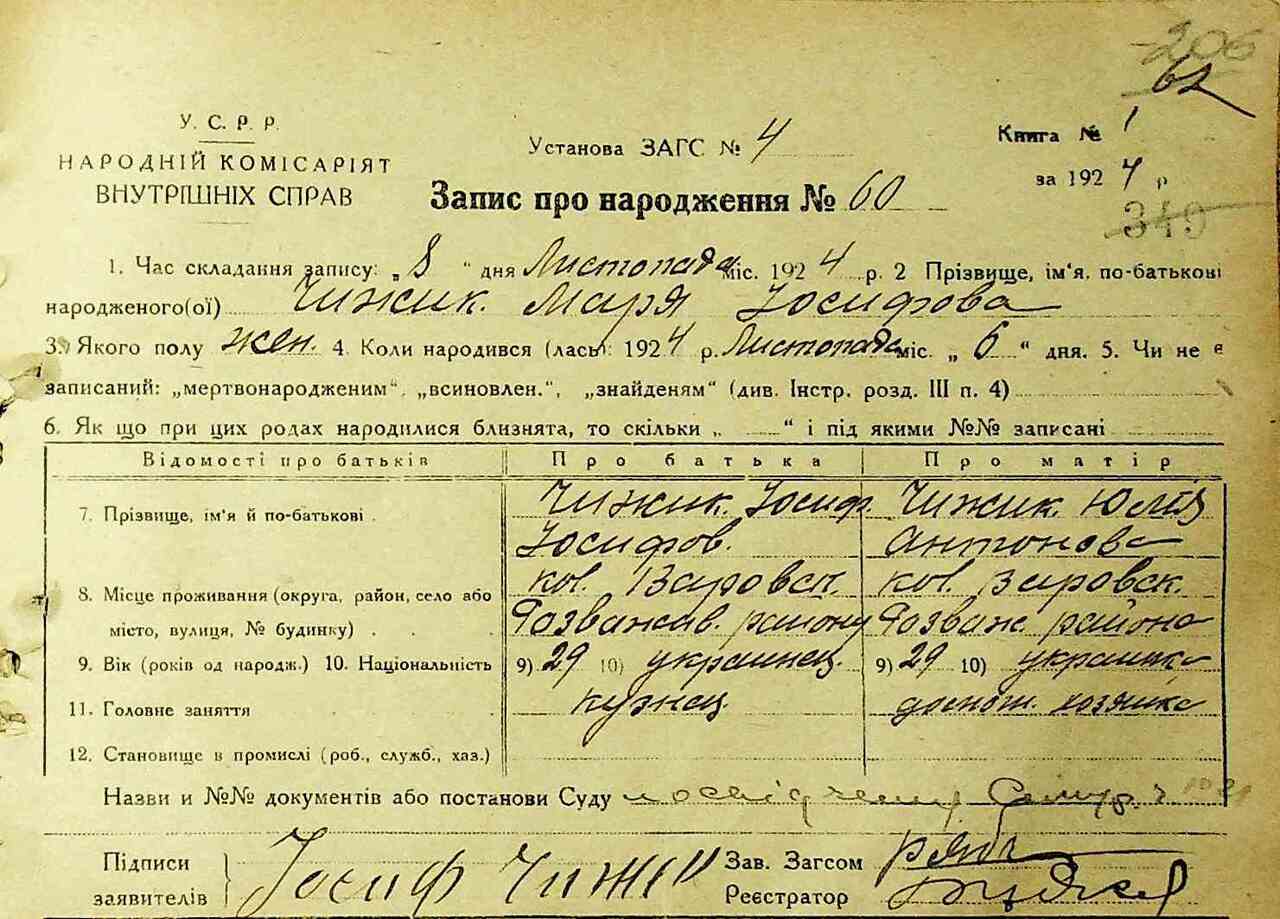 206
62
У. С. Р. Р.
НАРОДНІЙ КОМІСАРІЯТ
ВНУТРІШНІХ СПРАВ
Установа ЗАГС № 4
Книга № 1
за 1924 р
Запис про народження № 60
349
1. Час складання запису: „8 “ дня Листопада міс. 1924 р. 2 Прізвище, ім'я, по-батькові
народженого(ої) Чижик. Маря Іосифова
3. Якого полу жен. 4. Коли народився (лась): 1924 р. Листопада міс. „ 6 “ дня. 5. Чи не є
записаний: „мертвонародженим“, „всиновлен.“, „знайденям“ (див. Інстр. розд. III п. 4)
6. Як що при цих родах народилися близнята, то скільки „ “ і під якими №№ записані
Відомості про батьків Про батька Про матір
7. Прізвище, ім'я й по-батькові . Чижик. Іосиф. Іосифов. Чижик. Юлія Антонова
8. Місце проживання (округа, район, село або кол. кол.
місто, вулиця, № будинку) . . Розважів. району Розваж. района
9. Вік (років од народж.) 10. Національність 9) 29 10) украинец. 9) 29 10) украинка
11. Головне заняття . . . кузнец хозяйка
12. Становище в промислі (роб., служб., хаз.)
Назви и №№ документів або постанови Суду
Підписи
заявителів } Іосиф Чижик
Зав. Загсом
Реєстратор